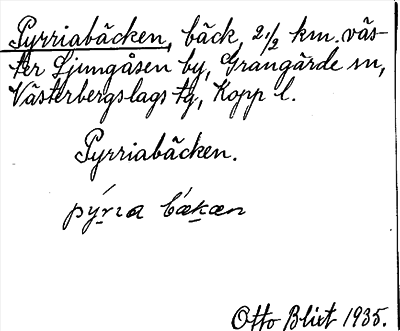 Pyrriabäcken, bäck 2½ km. väs-
ter Ljungåsen by, Grangärde sn,
Västerbergslags tg, Kopp l.
Pyrriabäcken.
pýrıa bákæn
Otto Blixt 1935.